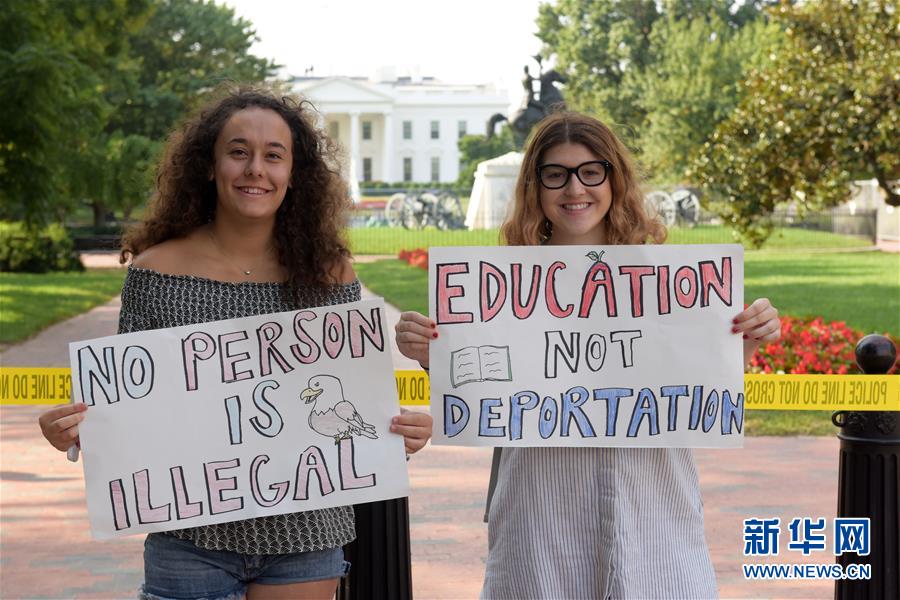 NO PERSON
IS
ILLEGAL
EDUCATION
NOT
DEPORTATION
POLICE LINE DO NOT
POLICE LINE DO NOT CROSS
新华网
WWW.NEWS.CN